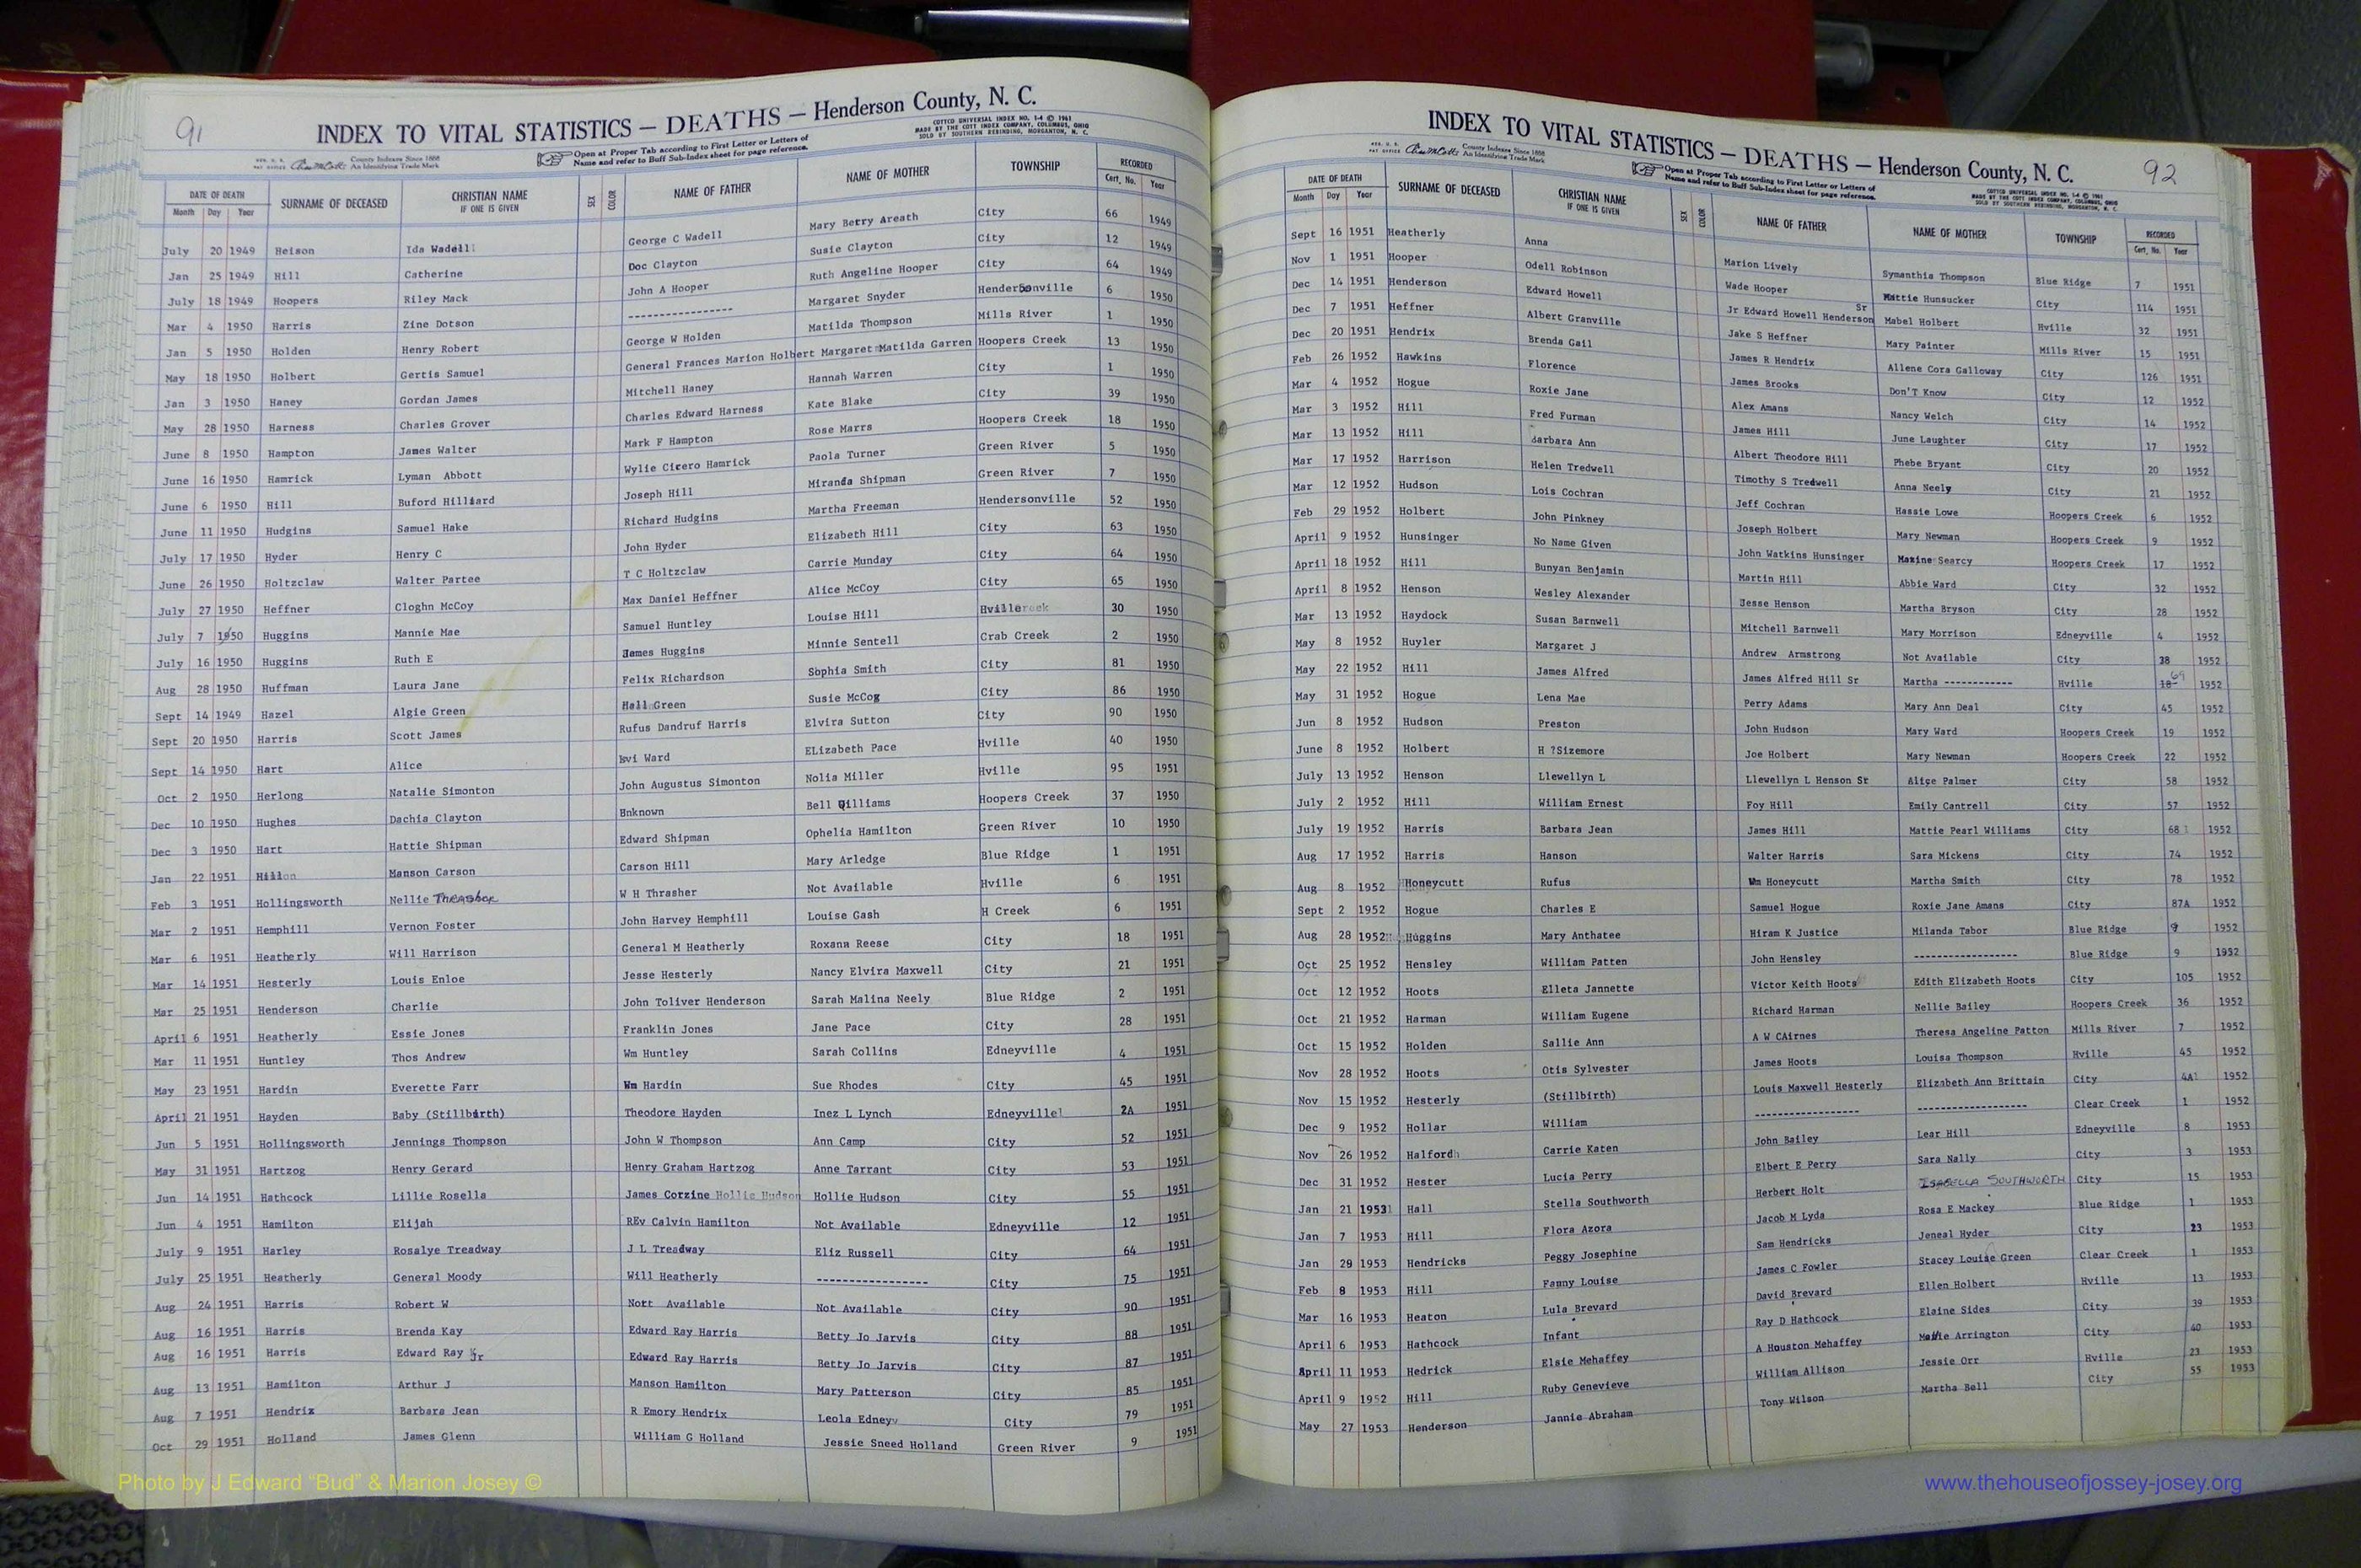 91
INDEX TO VITAL STATISTICS — DEATHS — Henderson County, N. C.
REG. U. S. PAT. OFFICE County Indexes Since 1888 An Identifying Trade Mark
Open at Proper Tab according to First Letter or Letters of Name and refer to Buff Sub-Index sheet for page reference.
COTTCO UNIVERSAL INDEX NO. 1-4 © 1961
MADE BY THE COTT INDEX COMPANY, COLUMBUS, OHIO
SOLD BY SOUTHERN REBINDING, MORGANTON, N. C.
DATE OF DEATH Month Day Year SURNAME OF DECEASED CHRISTIAN NAME IF ONE IS GIVEN SEX COLOR NAME OF FATHER NAME OF MOTHER TOWNSHIP RECORDED Cert. No. Year
July 20 1949 Heison Ida Wadell George C Wadell Mary Berry Areath City 66 1949
Jan 25 1949 Hill Catherine Doc Clayton Susie Clayton City 12 1949
July 18 1949 Hoopers Riley Mack John A Hooper Ruth Angeline Hooper City 64 1949
Mar 4 1950 Harris Zine Dotson ---------------- Margaret Snyder Hendersonville 6 1950
Jan 5 1950 Holden Henry Robert George W Holden Matilda Thompson Mills River 1 1950
May 18 1950 Holbert Gertis Samuel General Frances Marion Holbert Margaret Matilda Garren Hoopers Creek 13 1950
Jan 3 1950 Haney Gordan James Mitchell Haney Hannah Warren City 1 1950
May 28 1950 Harness Charles Grover Charles Edward Harness Kate Blake City 39 1950
June 8 1950 Hampton James Walter Mark F Hampton Rose Marrs Hoopers Creek 18 1950
June 16 1950 Hamrick Lyman Abbott Wylie Cicero Hamrick Paola Turner Green River 5 1950
June 6 1950 Hill Buford Hilliard Joseph Hill Miranda Shipman Green River 7 1950
June 11 1950 Hudgins Samuel Hake Richard Hudgins Martha Freeman Hendersonville 52 1950
July 17 1950 Hyder Henry C John Hyder Elizabeth Hill City 63 1950
June 26 1950 Holtzclaw Walter Partee T C Holtzclaw Carrie Munday City 64 1950
July 27 1950 Heffner Cloghn McCoy Max Daniel Heffner Alice McCoy City 65 1950
July 7 1950 Huggins Mannie Mae Samuel Huntley Louise Hill Hville 30 1950
July 16 1950 Huggins Ruth E James Huggins Minnie Sentell Crab Creek 2 1950
Aug 28 1950 Huffman Laura Jane Felix Richardson Sophia Smith City 81 1950
Sept 14 1949 Hazel Algie Green Hall Green Susie McCog City 86 1950
Sept 20 1950 Harris Scott James Rufus Dandruf Harris Elvira Sutton City 90 1950
Sept 14 1950 Hart Alice Evi Ward ELizabeth Pace Hville 40 1950
Oct 2 1950 Herlong Natalie Simonton John Augustus Simonton Nolia Miller Hville 95 1951
Dec 10 1950 Hughes Dachia Clayton Bnknown Bell Williams Hoopers Creek 37 1950
Dec 3 1950 Hart Hattie Shipman Edward Shipman Ophelia Hamilton Green River 10 1950
Jan 22 1951 Hill Manson Carson Carson Hill Mary Arledge Blue Ridge 1 1951
Feb 3 1951 Hollingsworth Nellie Thrasher W H Thrasher Not Available Hville 6 1951
Mar 2 1951 Hemphill Vernon Foster John Harvey Hemphill Louise Gash H Creek 6 1951
Mar 6 1951 Heatherly Will Harrison General M Heatherly Roxann Reese City 18 1951
Mar 14 1951 Hesterly Louis Enloe Jesse Hesterly Nancy Elvira Maxwell City 21 1951
Mar 25 1951 Henderson Charlie John Toliver Henderson Sarah Malina Neely Blue Ridge 2 1951
April 6 1951 Heatherly Essie Jones Franklin Jones Jane Pace City 28 1951
Mar 11 1951 Huntley Thos Andrew Wm Huntley Sarah Collins Edneyville 4 1951
May 23 1951 Hardin Everette Farr Wm Hardin Sue Rhodes City 45 1951
April 21 1951 Hayden Baby (Stillbirth) Theodore Hayden Inez L Lynch Edneyville 2A 1951
Jun 5 1951 Hollingsworth Jennings Thompson John W Thompson Ann Camp City 52 1951
May 31 1951 Hartzog Henry Gerard Henry Graham Hartzog Anne Tarrant City 53 1951
Jun 14 1951 Hathcock Lillie Rosella James Corzine Hollie Hudson Hollie Hudson City 55 1951
Jun 4 1951 Hamilton Elijah REv Calvin Hamilton Not Available Edneyville 12 1951
July 9 1951 Harley Rosalye Treadway J L Treadway Eliz Russell City 64 1951
July 25 1951 Heatherly General Moody Will Heatherly ----------------- City 75 1951
Aug 24 1951 Harris Robert W Nott Available Not Available City 90 1951
Aug 16 1951 Harris Brenda Kay Edward Ray Harris Betty Jo Jarvis City 88 1951
Aug 16 1951 Harris Edward Ray Jr Edward Ray Harris Betty Jo Jarvis City 87 1951
Aug 13 1951 Hamilton Arthur J Manson Hamilton Mary Patterson City 85 1951
Aug 7 1951 Hendrix Barbara Jean R Emory Hendrix Leola Edney City 79 1951
Oct 29 1951 Holland James Glenn William G Holland Jessie Sneed Holland Green River 9 1951
92
INDEX TO VITAL STATISTICS — DEATHS — Henderson County, N. C.
REG. U. S. PAT. OFFICE County Indexes Since 1888 An Identifying Trade Mark
Open at Proper Tab according to First Letter or Letters of Name and refer to Buff Sub-Index sheet for page reference.
COTTCO UNIVERSAL INDEX NO. 1-4 © 1961
MADE BY THE COTT INDEX COMPANY, COLUMBUS, OHIO
SOLD BY SOUTHERN REBINDING, MORGANTON, N. C.
DATE OF DEATH Month Day Year SURNAME OF DECEASED CHRISTIAN NAME IF ONE IS GIVEN SEX COLOR NAME OF FATHER NAME OF MOTHER TOWNSHIP RECORDED Cert. No. Year
Sept 16 1951 Heatherly Anna Marion Lively Symanthia Thompson Blue Ridge 7 1951
Nov 1 1951 Hooper Odell Robinson Wade Hooper Mattie Hunsucker City 114 1951
Dec 14 1951 Henderson Edward Howell Jr Edward Howell Henderson Sr Mabel Holbert Hville 32 1951
Dec 7 1951 Heffner Albert Granville Jake S Heffner Mary Painter Mills River 15 1951
Dec 20 1951 Hendrix Brenda Gail James R Hendrix Allene Cora Galloway City 126 1951
Feb 26 1952 Hawkins Florence James Brooks Don'T Know City 12 1952
Mar 4 1952 Hogue Roxie Jane Alex Amans Nancy Welch City 14 1952
Mar 3 1952 Hill Fred Furman James Hill June Laughter City 17 1952
Mar 13 1952 Hill Barbara Ann Albert Theodore Hill Phebe Bryant City 20 1952
Mar 17 1952 Harrison Helen Tredwell Timothy S Tredwell Anna Neely City 21 1952
Mar 12 1952 Hudson Lois Cochran Jeff Cochran Hassie Lowe Hoopers Creek 6 1952
Feb 29 1952 Holbert John Pinkney Joseph Holbert Mary Newman Hoopers Creek 9 1952
April 9 1952 Hunsinger No Name Given John Watkins Hunsinger Maxine Searcy Hoopers Creek 17 1952
April 18 1952 Hill Bunyan Benjamin Martin Hill Abbie Ward City 32 1952
April 8 1952 Henson Wesley Alexander Jesse Henson Martha Bryson City 28 1952
Mar 13 1952 Haydock Susan Barnwell Mitchell Barnwell Mary Morrison Edneyville 4 1952
May 8 1952 Huyler Margaret J Andrew Armstrong Not Available City 38 1952
May 22 1952 Hill James Alfred James Alfred Hill Sr Martha ------------ Hville 18 69 1952
May 31 1952 Hogue Lena Mae Perry Adams Mary Ann Deal City 45 1952
Jun 8 1952 Hudson Preston John Hudson Mary Ward Hoopers Creek 19 1952
June 8 1952 Holbert H ?Sizemore Joe Holbert Mary Newman Hoopers Creek 22 1952
July 13 1952 Henson Llewellyn L Llewellyn L Henson Sr Alice Palmer City 58 1952
July 2 1952 Hill William Ernest Foy Hill Emily Cantrell City 57 1952
July 19 1952 Harris Barbara Jean James Hill Mattie Pearl Williams City 68 1952
Aug 17 1952 Harris Hanson Walter Harris Sara Mickens City 74 1952
Aug 8 1952 Honeycutt Rufus Wm Honeycutt Martha Smith City 78 1952
Sept 2 1952 Hogue Charles E Samuel Hogue Roxie Jane Amans City 87A 1952
Aug 28 1952 Huggins Mary Anthatee Hiram K Justice Milanda Tabor Blue Ridge 9 1952
Oct 25 1952 Hensley William Patten John Hensley ----------------- Blue Ridge 9 1952
Oct 12 1952 Hoots Elleta Jannette Victor Keith Hoots Edith Elizabeth Hoots City 105 1952
Oct 21 1952 Harman William Eugene Richard Harman Nellie Bailey Hoopers Creek 36 1952
Oct 15 1952 Holden Sallie Ann A W CAirnes Theresa Angeline Patton Mills River 7 1952
Nov 28 1952 Hoots Otis Sylvester James Hoots Louisa Thompson Hville 45 1952
Nov 15 1952 Hesterly (Stillbirth) Louis Maxwell Hesterly Elizabeth Ann Brittain City 4A 1952
Dec 9 1952 Hollar William ----------------- ------------------ Clear Creek 1 1952
Nov 26 1952 Halford Carrie Katen John Bailey Lear Hill Edneyville 8 1953
Dec 31 1952 Hester Lucia Perry Elbert E Perry Sara Nally City 3 1953
Jan 21 1953 Hall Stella Southworth Herbert Holt ISABELLA SOUTHWORTH City 15 1953
Jan 7 1953 Hill Flora Azora Jacob M Lyda Rosa E Mackey Blue Ridge 1 1953
Jan 29 1953 Hendricks Peggy Josephine Sam Hendricks Jeneal Hyder City 23 1953
Feb 8 1953 Hill Fanny Louise James C Fowler Stacey Louise Green Clear Creek 1 1953
Mar 16 1953 Heaton Lula Brevard David Brevard Ellen Holbert Hville 13 1953
April 6 1953 Hathcock Infant Ray D Hathcock Elaine Sides City 39 1953
April 11 1953 Hedrick Elsie Mehaffey A Houston Mehaffey Mattie Arrington City 40 1953
April 9 1952 Hill Ruby Genevieve William Allison Jessie Orr Hville 23 1953
May 27 1953 Henderson Jannie Abraham Tony Wilson Martha Bell City 55 1953
Photo by J Edward “Bud” & Marion Josey ©
www.thehouseofjossey-josey.org